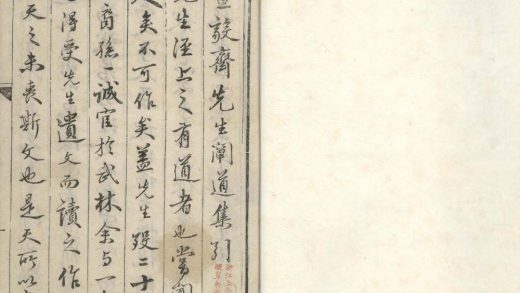 毅齋先生闡道集引
先生涇上之有道者也嘗
矣不可作矣蓋先生歿二十
裔孫一誠官於武林余與一
得受先生遺文而讀之作
天之未喪斯文也是天所以